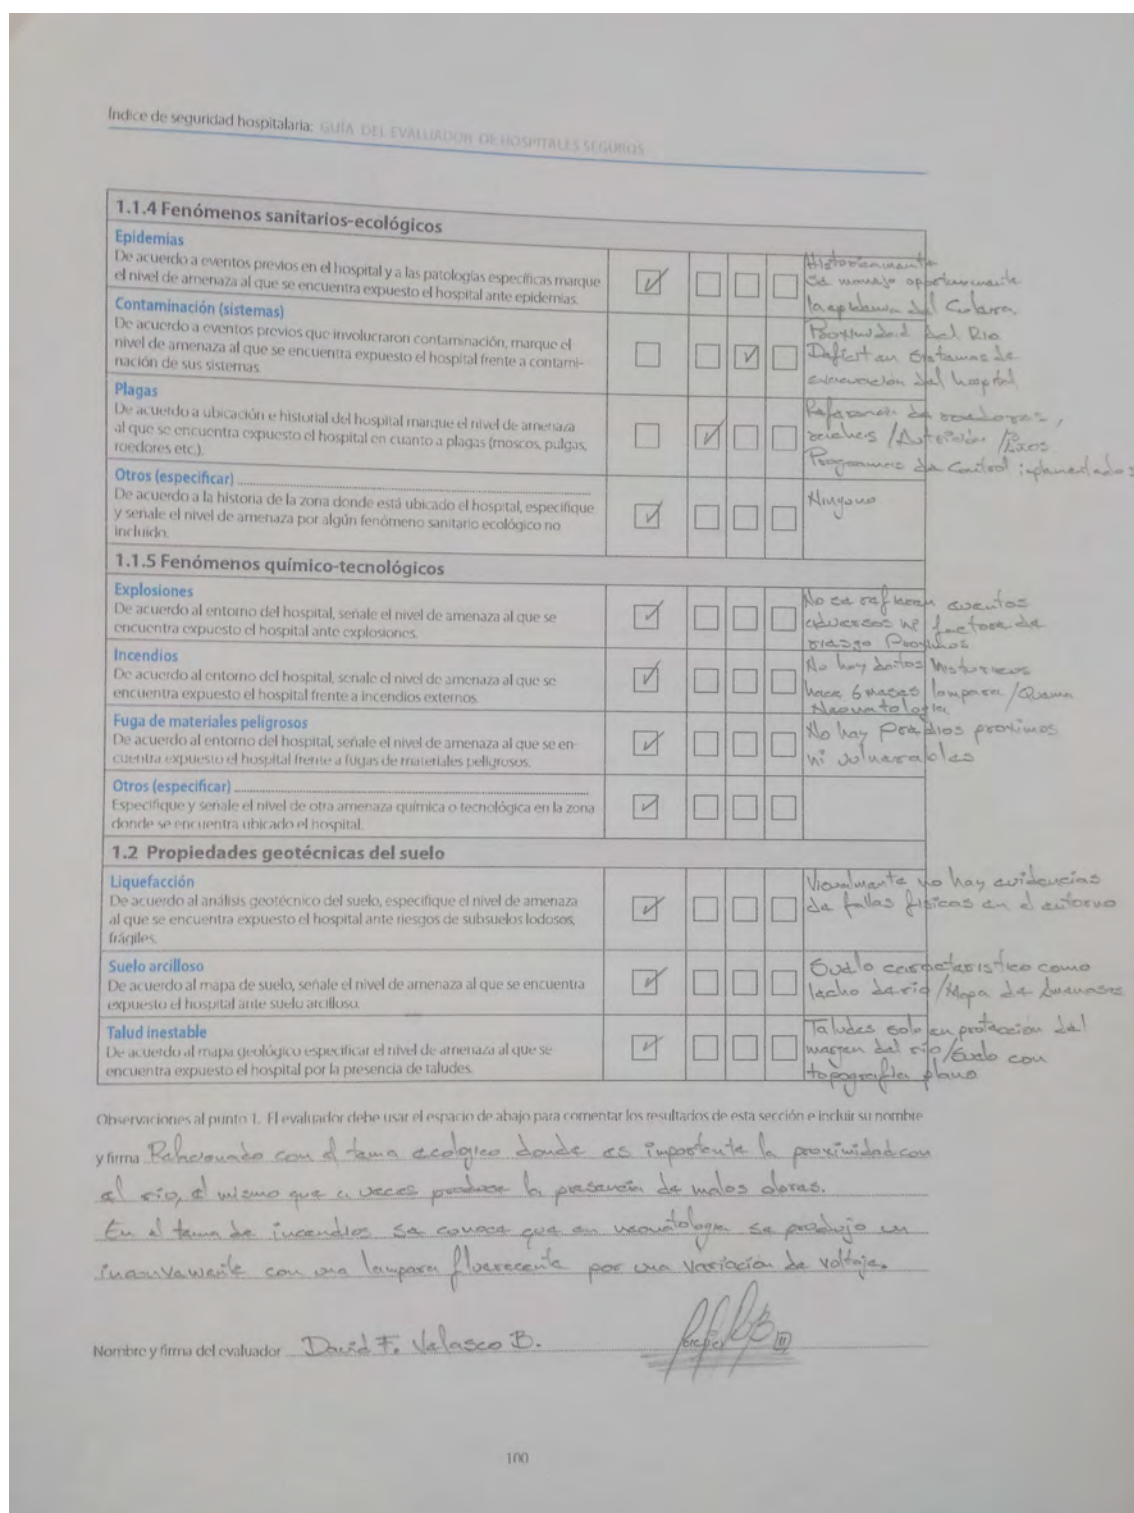 Índice de seguridad hospitalaria: GUÍA DEL EVALUADOR DE HOSPITALES SEGUROS
1.1.4 Fenómenos sanitarios-ecológicos
Epidemias
De acuerdo a eventos previos en el hospital y a las patologías específicas marque
el nivel de amenaza al que se encuentra expuesto el hospital ante epidemias.
Historicamente
se manejo opportunamente
la epidemia del Colera
Contaminación (sistemas)
De acuerdo a eventos previos que involucraron contaminación, marque el
nivel de amenaza al que se encuentra expuesto el hospital frente a contami-
nación de sus sistemas
Proximidad del Rio
Deficit en sistemas de
evacuación del hospital
Plagas
De acuerdo a ubicación e historial del hospital marque el nivel de amenaza
al que se encuentra expuesto el hospital en cuanto a plagas (moscos, pulgas,
roedores etc.).
Referencia de roedores,
/
Programas de Control implementados
Otros (especificar)
De acuerdo a la historia de la zona donde está ubicado el hospital, especifique
y señale el nivel de amenaza por algún fenómeno sanitario ecológico no
incluido.
Ninguno
1.1.5 Fenómenos químico-tecnológicos
Explosiones
De acuerdo al entorno del hospital, señale el nivel de amenaza al que se
encuentra expuesto el hospital ante explosiones.
No se refieren eventos
adversos ni factores de
riesgo Proximos
Incendios
De acuerdo al entorno del hospital, señale el nivel de amenaza al que se
encuentra expuesto el hospital frente a incendios externos.
No hay datos historicos
hace 6 meses lampara / Quema
Neonatologia
Fuga de materiales peligrosos
De acuerdo al entorno del hospital, señale el nivel de amenaza al que se en-
cuentra expuesto el hospital frente a fugas de materiales peligrosos.
No hay Predios proximos
ni vulnerables
Otros (especificar)
Especifique y señale el nivel de otra amenaza química o tecnológica en la zona
donde se encuentra ubicado el hospital.
1.2 Propiedades geotécnicas del suelo
Liquefacción
De acuerdo al análisis geotécnico del suelo, especifique el nivel de amenaza
al que se encuentra expuesto el hospital ante riesgos de subsuelos lodosos,
frágiles.
Visualmente no hay evidencias
de fallas fisicas en el entorno
Suelo arcilloso
De acuerdo al mapa de suelo, señale el nivel de amenaza al que se encuentra
expuesto el hospital ante suelo arcilloso.
Suelo caracteristico como
lecho de rio / Mapa de Amenazas
Talud inestable
De acuerdo al mapa geológico especificar el nivel de amenaza al que se
encuentra expuesto el hospital por la presencia de taludes.
Taludes solo en proteccion del
margen del rio / Suelo con
topografia plano
Observaciones al punto 1. El evaluador debe usar el espacio de abajo para comentar los resultados de esta sección e incluir su nombre
y firma Relacionado con el tema ecologico donde es importante la proximidad con
el rio, el mismo que a veces produce la presencia de malos olores.
En el tema de incendios se conoce que en neonatologia se produjo un
con una lampara fluorecente por una variación de voltaje.
Nombre y firma del evaluador David F. Velasco B.
100